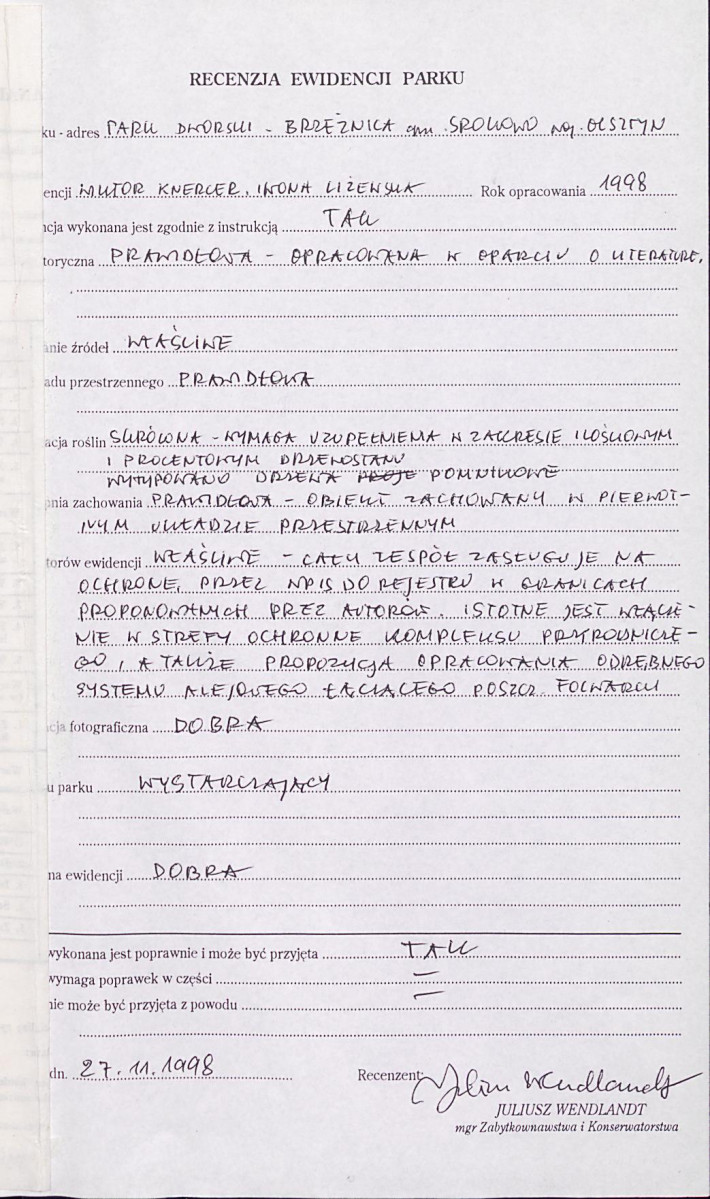 RECENZJA EWIDENCJI PARKU
ku - adres PARK DWORSKI - BRZEŹNICA gm. SROKOWO woj. OLSZTYN
encji WIKTOR KNERCER, IWONA LIŻEWSKA Rok opracowania 1998
cja wykonana jest zgodnie z instrukcją TAK
toryczna PRAWIDŁOWA - OPRACOWANA W OPARCIU O LITERATURĘ,
nie źródeł WŁAŚCIWE
adu przestrzennego PRAWIDŁOWA
acja roślin SKRÓWNA - WYMAGA UZUPEŁNIENIA W ZAKRESIE ILOŚCIOWYM
I PROCENTOWYM DRZEWOSTANU
WYTYPOWANO DRZEWA POMNIKOWE
nia zachowania PRAWIDŁOWA - OBIEKT ZACHOWANY W PIERWOT-
NYM UKŁADZIE PRZESTRZENNYM
torów ewidencji WŁAŚCIWE - CAŁY ZESPÓŁ ZASŁUGUJE NA
OCHRONĘ, PRZEZ WPIS DO REJESTRU W GRANICACH
PROPONOWANYCH PRZEZ AUTORÓW. ISTOTNE JEST WŁĄCZE-
NIE W STREFY OCHRONNE KOMPLEKSU PRZYRODNICZE-
GO, A TAKŻE PROPOZYCJA OPRACOWANIA ODRĘBNEGO
SYSTEMU ALEJOWEGO ŁĄCZĄCEGO POSZCZ. FOLWARKI
cja fotograficzna DOBRA
u parku WYSTARCZAJĄCY
na ewidencji DOBRA
wykonana jest poprawnie i może być przyjęta TAK
wymaga poprawek w części —
nie może być przyjęta z powodu —
dn. 27.11.1998 Recenzent: Juliusz Wendlandt
JULIUSZ WENDLANDT
mgr Zabytkownawstwa i Konserwatorstwa